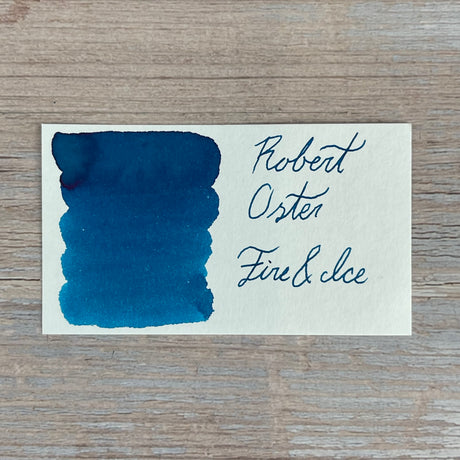 Robert
Oster
Fire & Ice